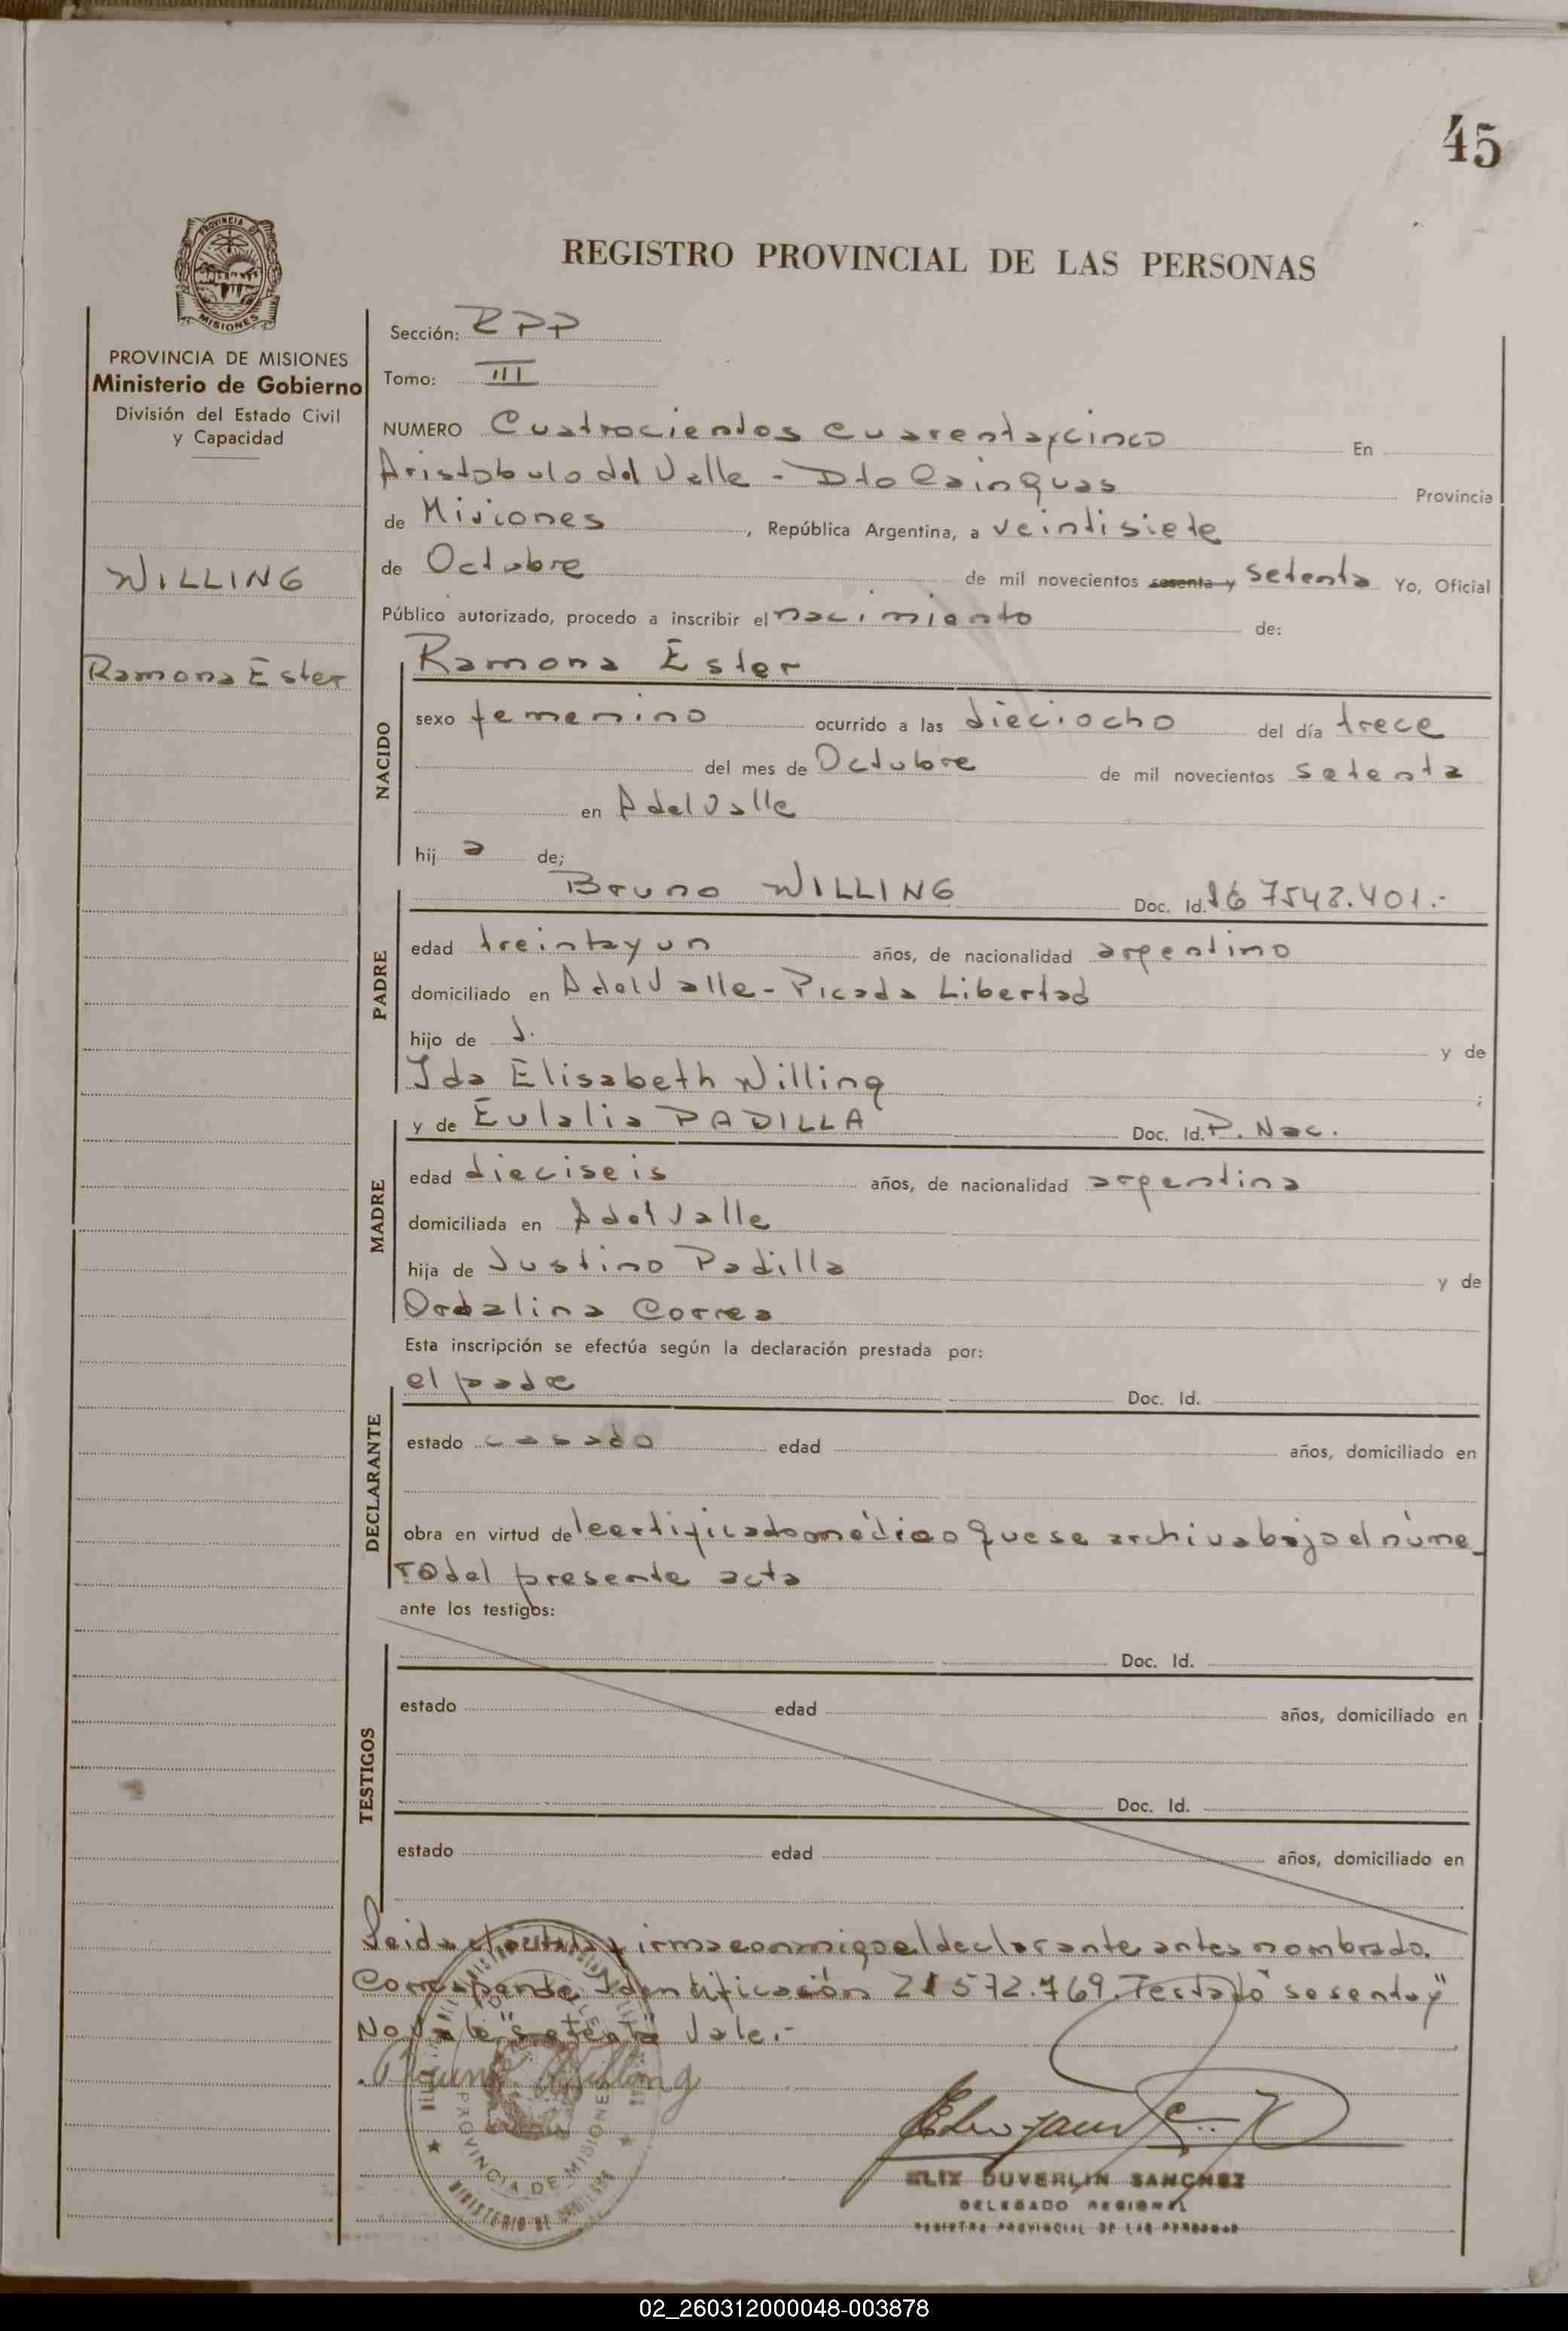 45
REGISTRO PROVINCIAL DE LAS PERSONAS
PROVINCIA DE MISIONES
PROVINCIA DE MISIONES
Ministerio de Gobierno
División del Estado Civil
y Capacidad
WILLING
Ramona Ester
Sección: RPP
Tomo: III
NUMERO Cuatrocientos cuarentaycinco En
Aristobulo del Valle - Dto Cainguas Provincia
de Misiones, República Argentina, a veintisiete
de Octubre de mil novecientos sesenta y setenta Yo, Oficial
Público autorizado, procedo a inscribir el nacimiento de:
Ramona Ester
NACIDO
sexo femenino ocurrido a las dieciocho del día trece
del mes de Octubre de mil novecientos setenta
en AdelValle
hij a de;
Bruno WILLING Doc. Id. 7548.401.-
PADRE
edad treintayun años, de nacionalidad argentino
domiciliado en AdelValle - Picada Libertad
hijo de y de
Ida Elisabeth Willing ;
y de Eulalia PADILLA Doc. Id. P. Nac.
MADRE
edad dieciseis años, de nacionalidad argentina
domiciliada en AdelValle
hija de Justino Padilla y de
Ordalina Correa
Esta inscripción se efectúa según la declaración prestada por:
el padre Doc. Id.
DECLARANTE
estado casado edad años, domiciliado en
obra en virtud del certificado médico que se archiva bajo el núme-
ro del presente acta
ante los testigos:
Doc. Id.
TESTIGOS
estado edad años, domiciliado en
Doc. Id.
estado edad años, domiciliado en
Leida el acta la firma conmigo el declarante antes nombrado.
Corresponde Identificación 21572.769. Testado "sesenta y"
No vale "setenta" Vale.-
Bruno Willing
PROVINCIA DE MISIONES
MINISTERIO DE GOBIERNO
ELIX DUVERLIN SANCHEZ
DELEGADO REGIONAL
REGISTRO PROVINCIAL DE LAS PERSONAS
02_260312000048-003878